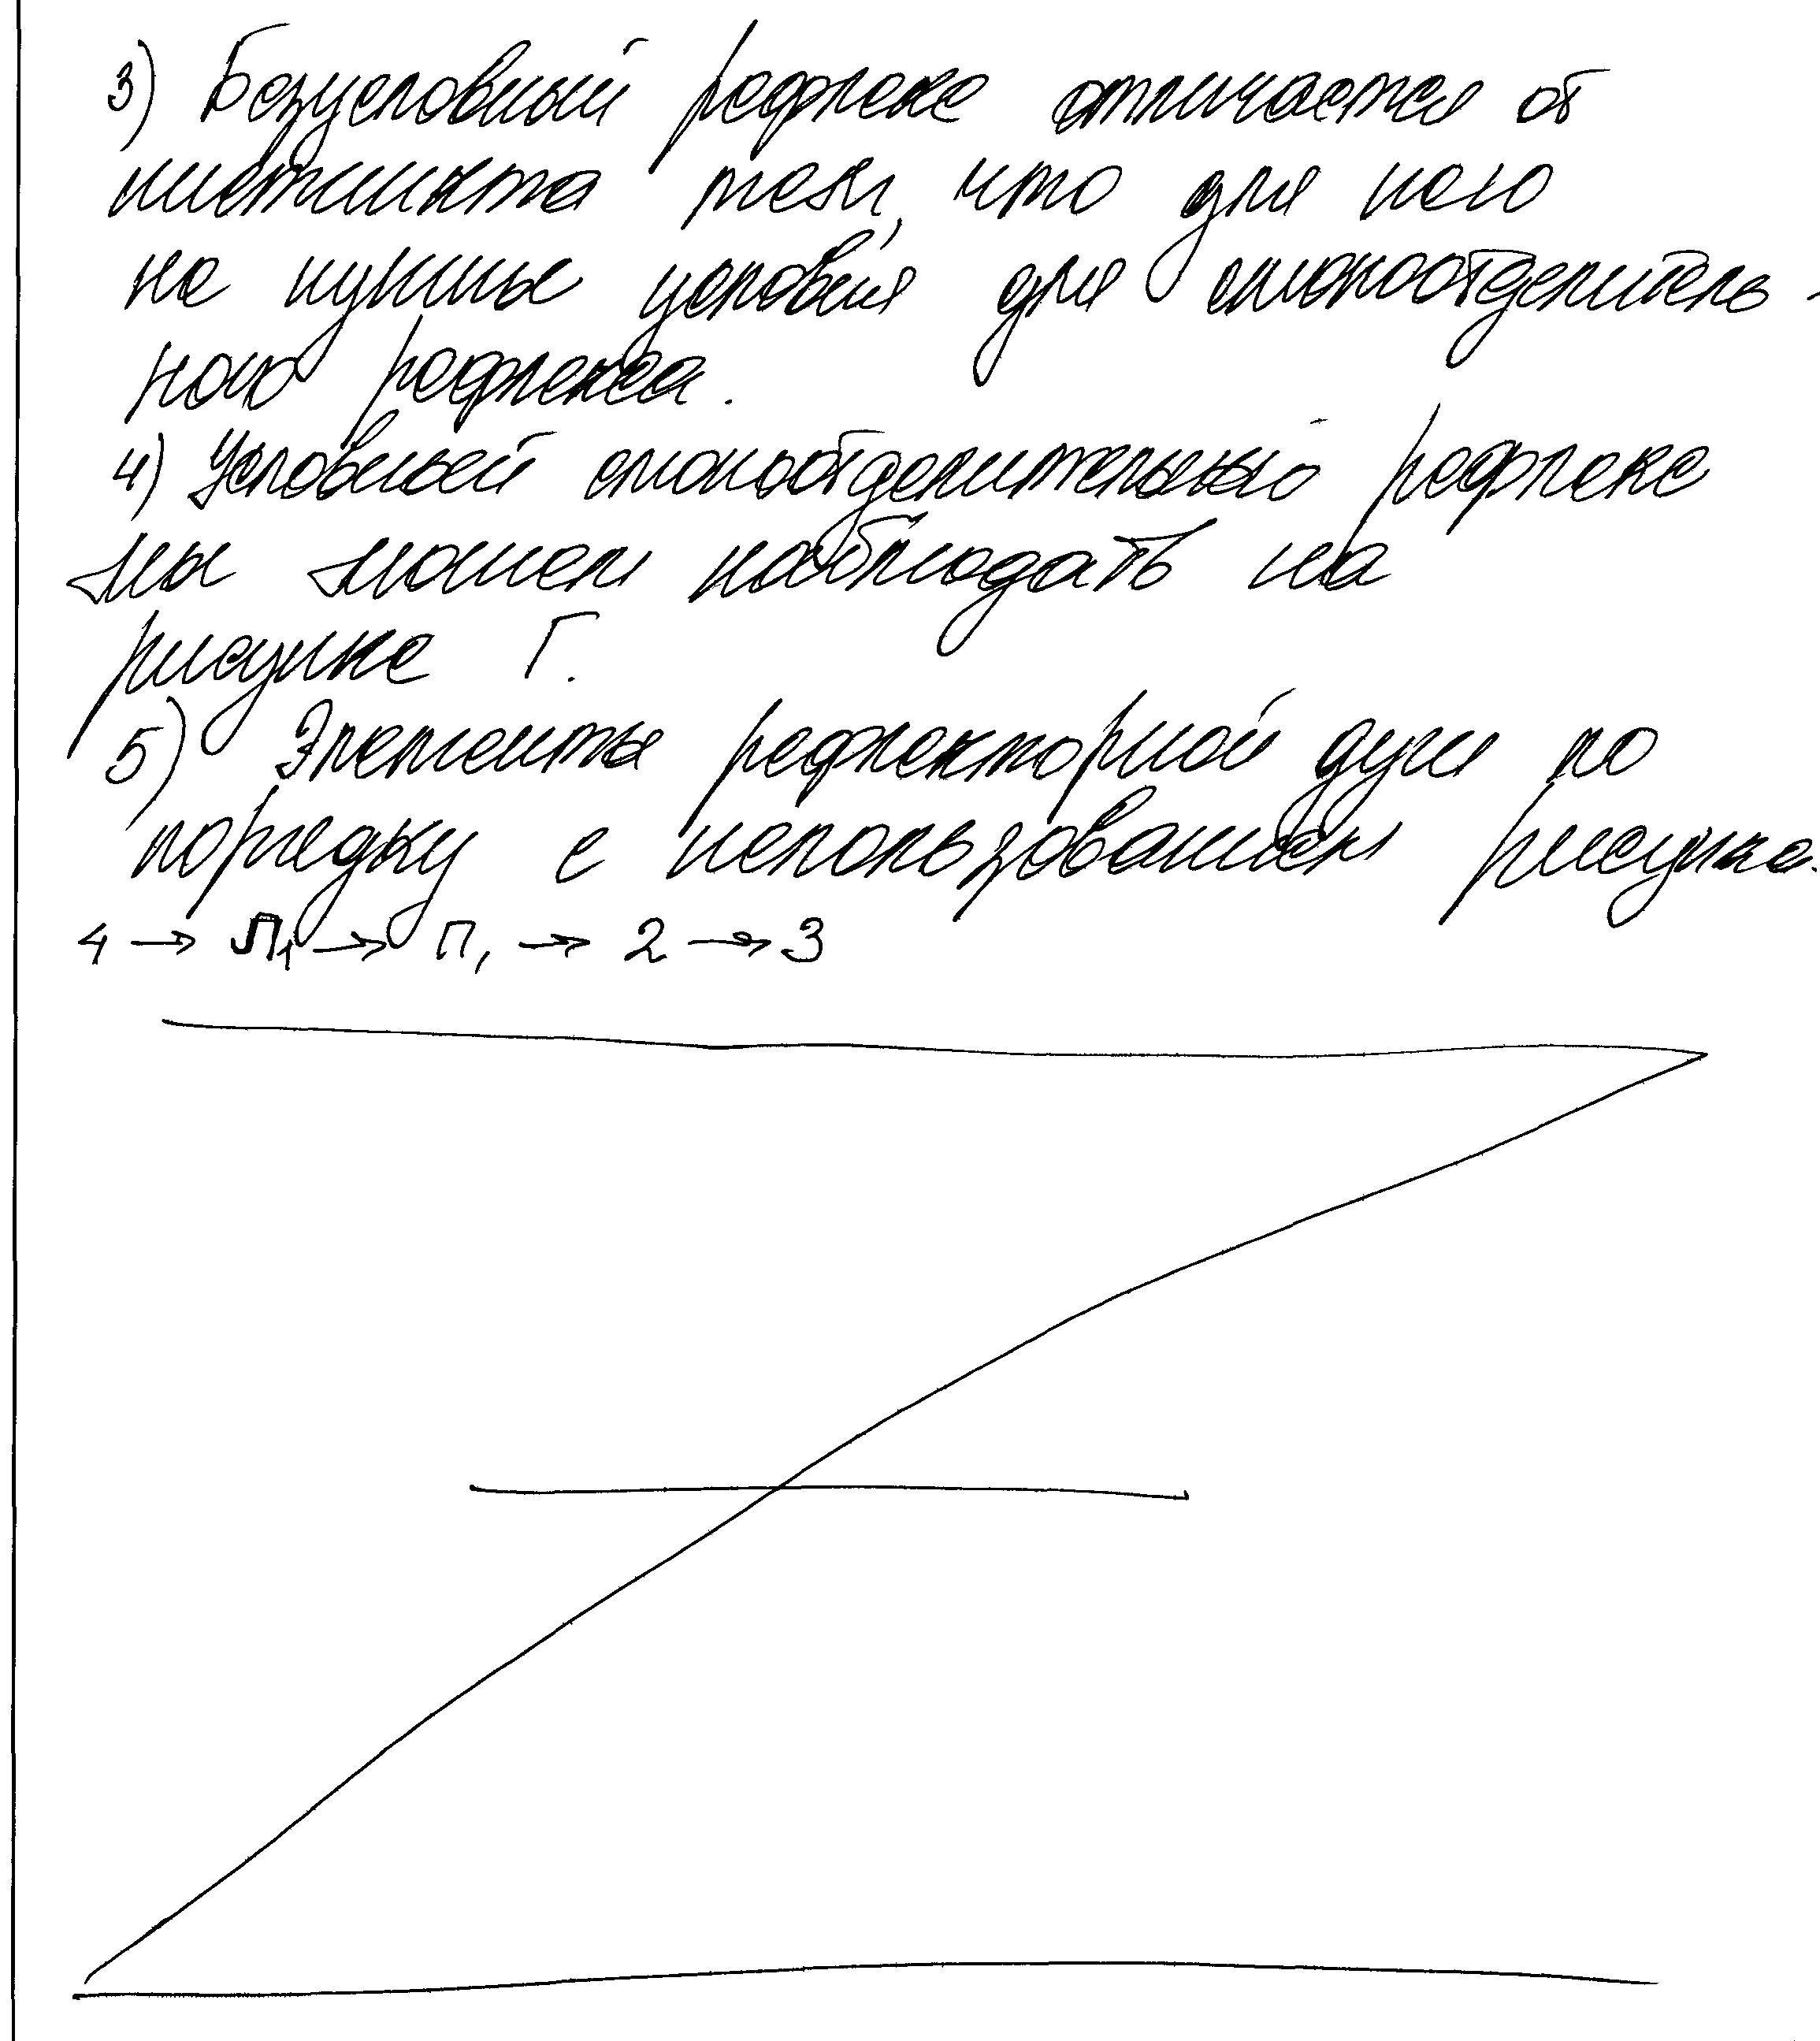 3) Безусловный рефлекс отличается от
инстинкта тем, что для него
не нужны условия для слюноотделитель-
ного рефлекса.
4) Условный слюноотделительный рефлекс
мы можем наблюдать на
рисунке Г.
5) Элементы рефлекторной дуги по
порядку с использованием рисунка.
4 → Л1 → П1 → 2 → 3